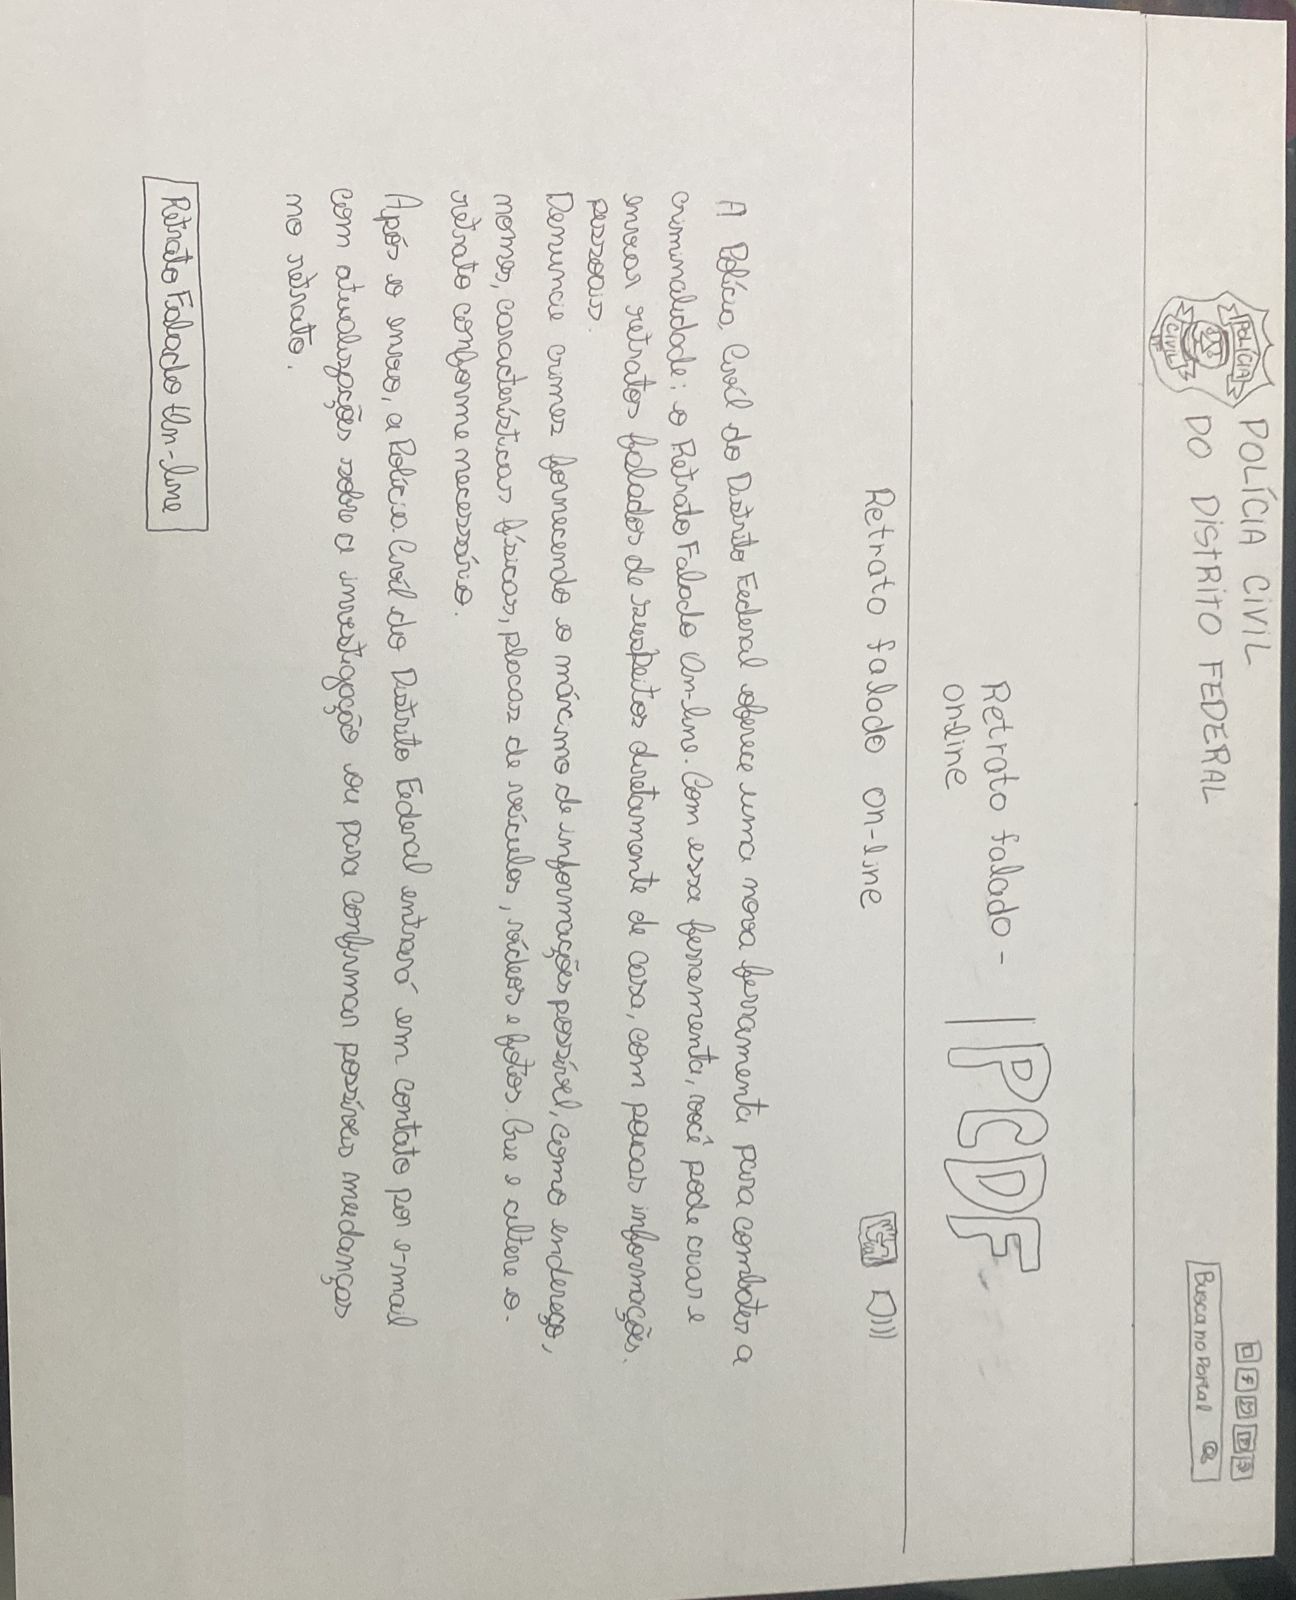 POLÍCIA
CIVIL
DF
POLÍCIA CIVIL
DO DISTRITO FEDERAL
Busca no Portal
Retrato falado -
online
PCDF
Retrato falado on-line
A Polícia Civil do Distrito Federal oferece uma nova ferramenta para combater a
criminalidade: o Retrato Falado On-line. Com essa ferramenta, você pode criar e
enviar retratos falados de suspeitos diretamente de casa, com poucas informações.
pessoais.
Denuncie crimes fornecendo o máximo de informações possível, como endereço,
nomes, características físicas, placas de veículos, vídeos e fotos. Crie e altere o.
retrato conforme necessário.
Após o envio, a Polícia Civil do Distrito Federal entrará em contato por e-mail
com atualizações sobre a investigação ou para confirmar possíveis mudanças
no retrato.
Retrato Falado On-line